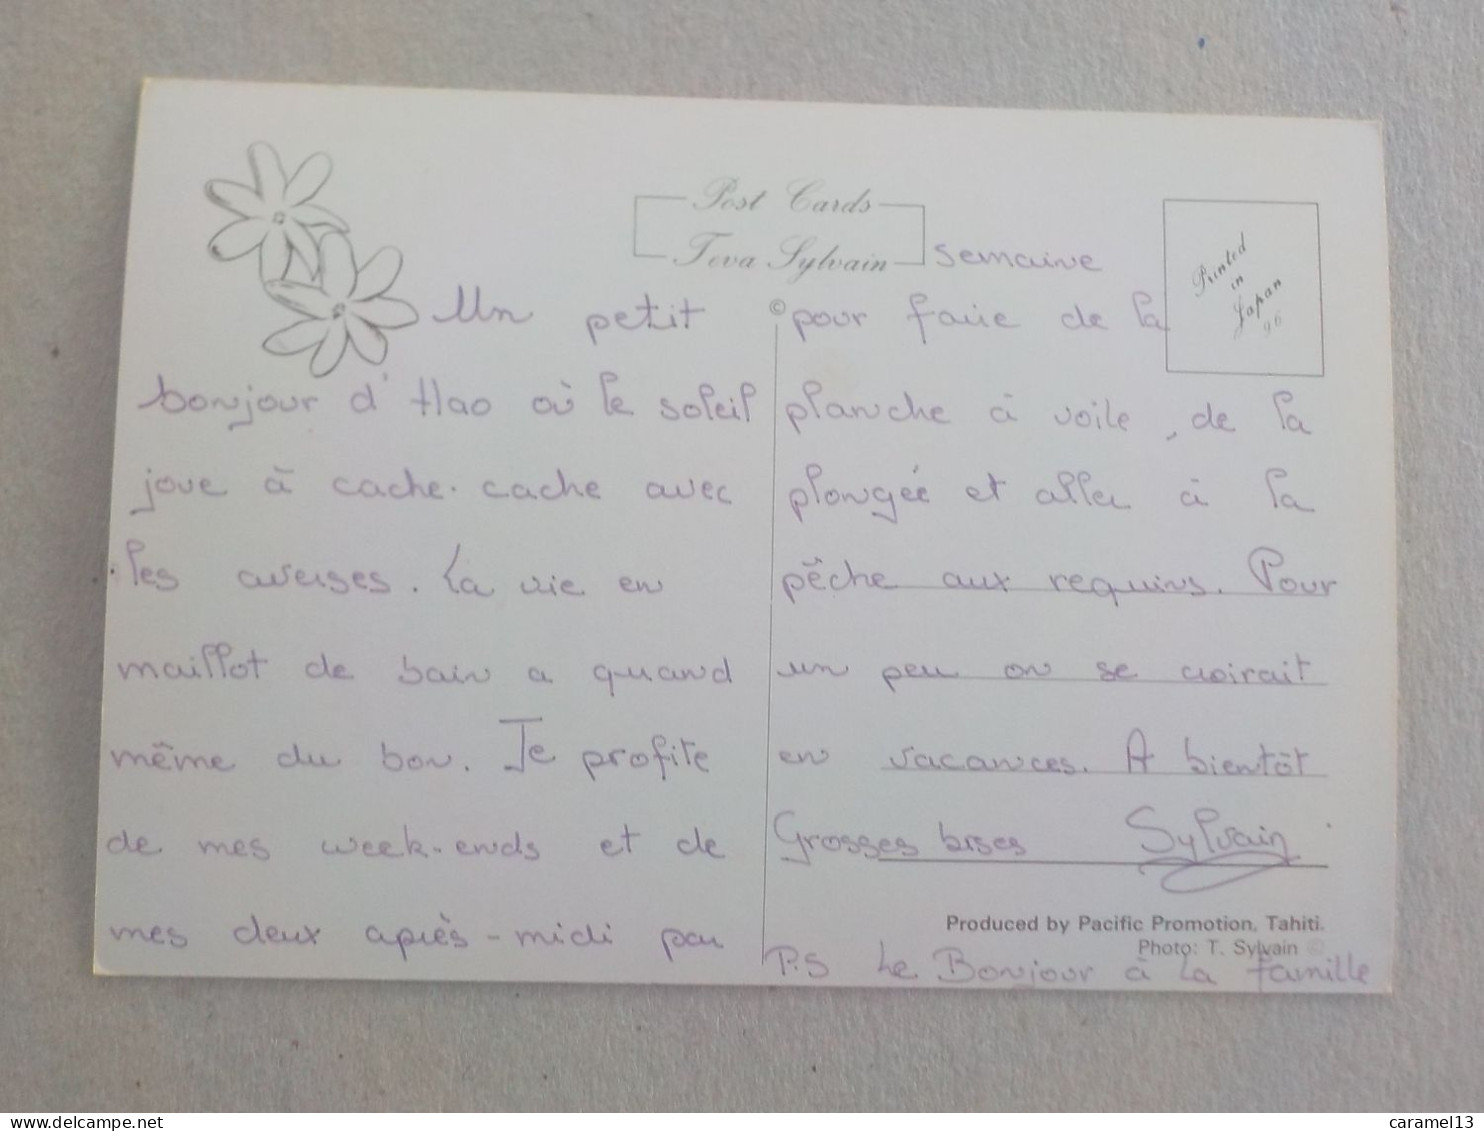 Post Cards
Teva Sylvain
Printed
in
Japan
96
Un petit
bonjour d'Hao où le soleil
joue à cache-cache avec
les averses. La vie en
maillot de bain a quand
même du bon. Je profite
de mes week-ends et de
mes deux après-midi par
semaine
© pour faire de la
planche à voile, de la
plongée et aller à la
pêche aux requins. Pour
un peu on se croirait
en vacances. A bientôt
Grosses bises Sylvain
Produced by Pacific Promotion, Tahiti.
Photo: T. Sylvain ©
P.S Le Bonjour à la famille
delcampe.net
caramel13